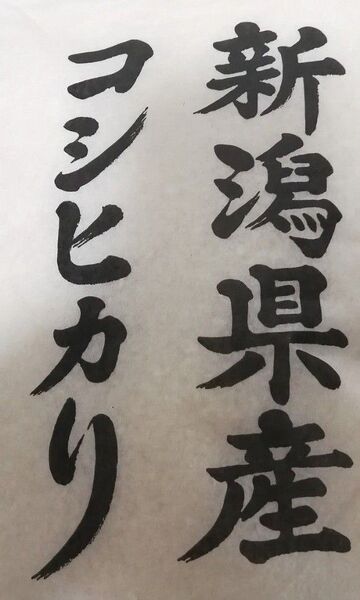 新潟県産
コシヒカリ